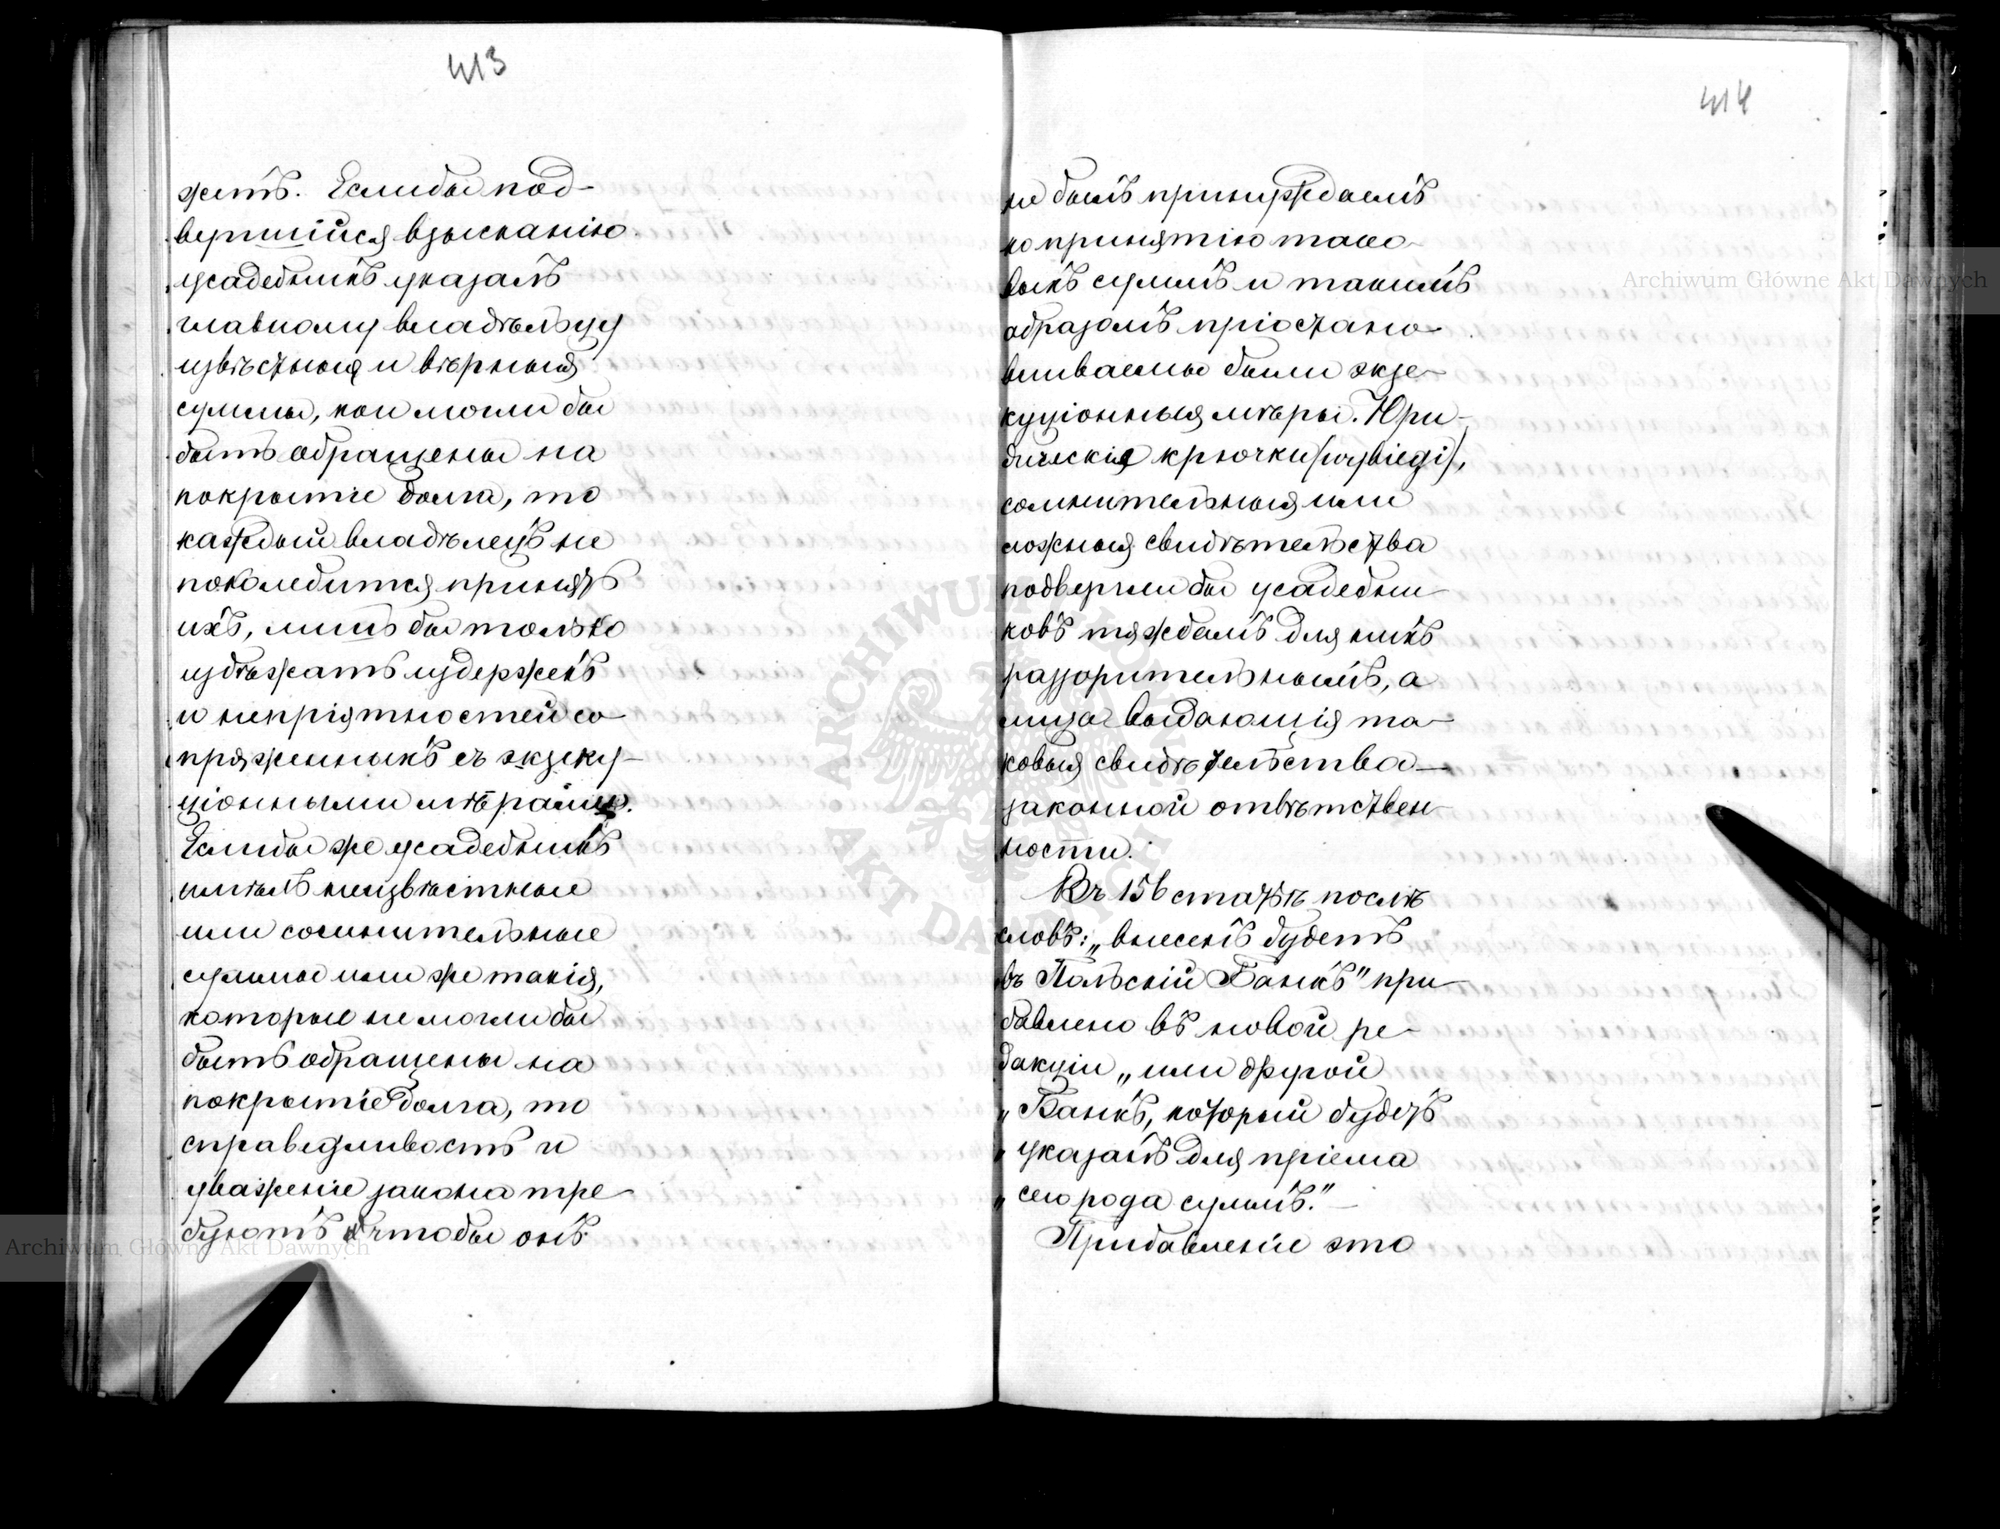 413
житъ. Еслибы под-
вергшійся взысканію
усадебникъ указалъ
главному владѣльцу
извѣстныя и вѣрныя
суммы, кои могли бы
быть обращены на
покрытіе долга, то
каждый владѣлецъ не
поколебится принять
ихъ, лишь бы только
избѣжать издержекъ
и непріятностей со-
пряженныхъ съ экзеку-
ціонными мѣрами.
Еслибы же усадебникъ
имѣлъ неизвѣстные
или сомнительные
суммы или же такія,
которые не могли бы
быть обращены на
покрытіе долга, то
справедливость и
уваженіе закона тре-
буютъ чтобы онъ
414
не былъ принуждаемъ
ко принятію тако-
выхъ суммъ и такимъ
образомъ пріостано-
вливаемы были экзе-
куціонныя мѣры. Юри-
дическія крючки (wybiegi),
сомнительныя или
ложныя свидѣтельства
подвергли бы усадебни-
ковъ тяжбамъ для нихъ
раззорительнымъ, а
лица выдающія та-
ковыя свидѣтельства —
законной отвѣтствен-
ности.
Въ 156 статьѣ послѣ
словъ: „внесенъ будетъ
въ Польскій Банкъ" при-
бавлено въ новой ре-
дакціи „или другой
„Банкъ, который будетъ
„указанъ для пріема
„сего рода суммъ." —
Прибавленіе это
Archiwum Główne Akt Dawnych
Archiwum Główne Akt Dawnych
ARCHIWUM GŁÓWNE AKT DAWNYCH